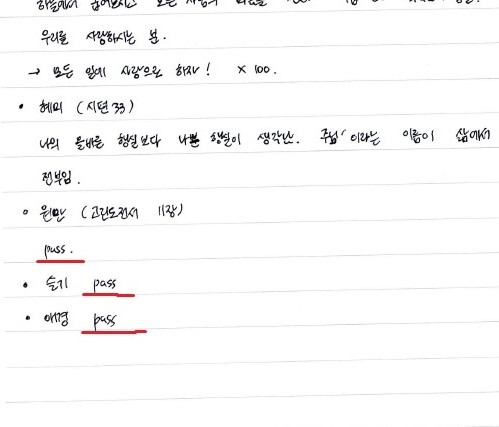 우리를 사랑하시는 분.
→ 모든 일에 사랑으로 하자! × 100.
• 혜미 (시편 33)
나의 올바른 행실보다 나쁜 행실이 생각난. 주님' 이라는 이름이 삶에서
전부임.
• 원만 (고린도전서 11장)
pass.
• 슬기 pass
• 애경 pass